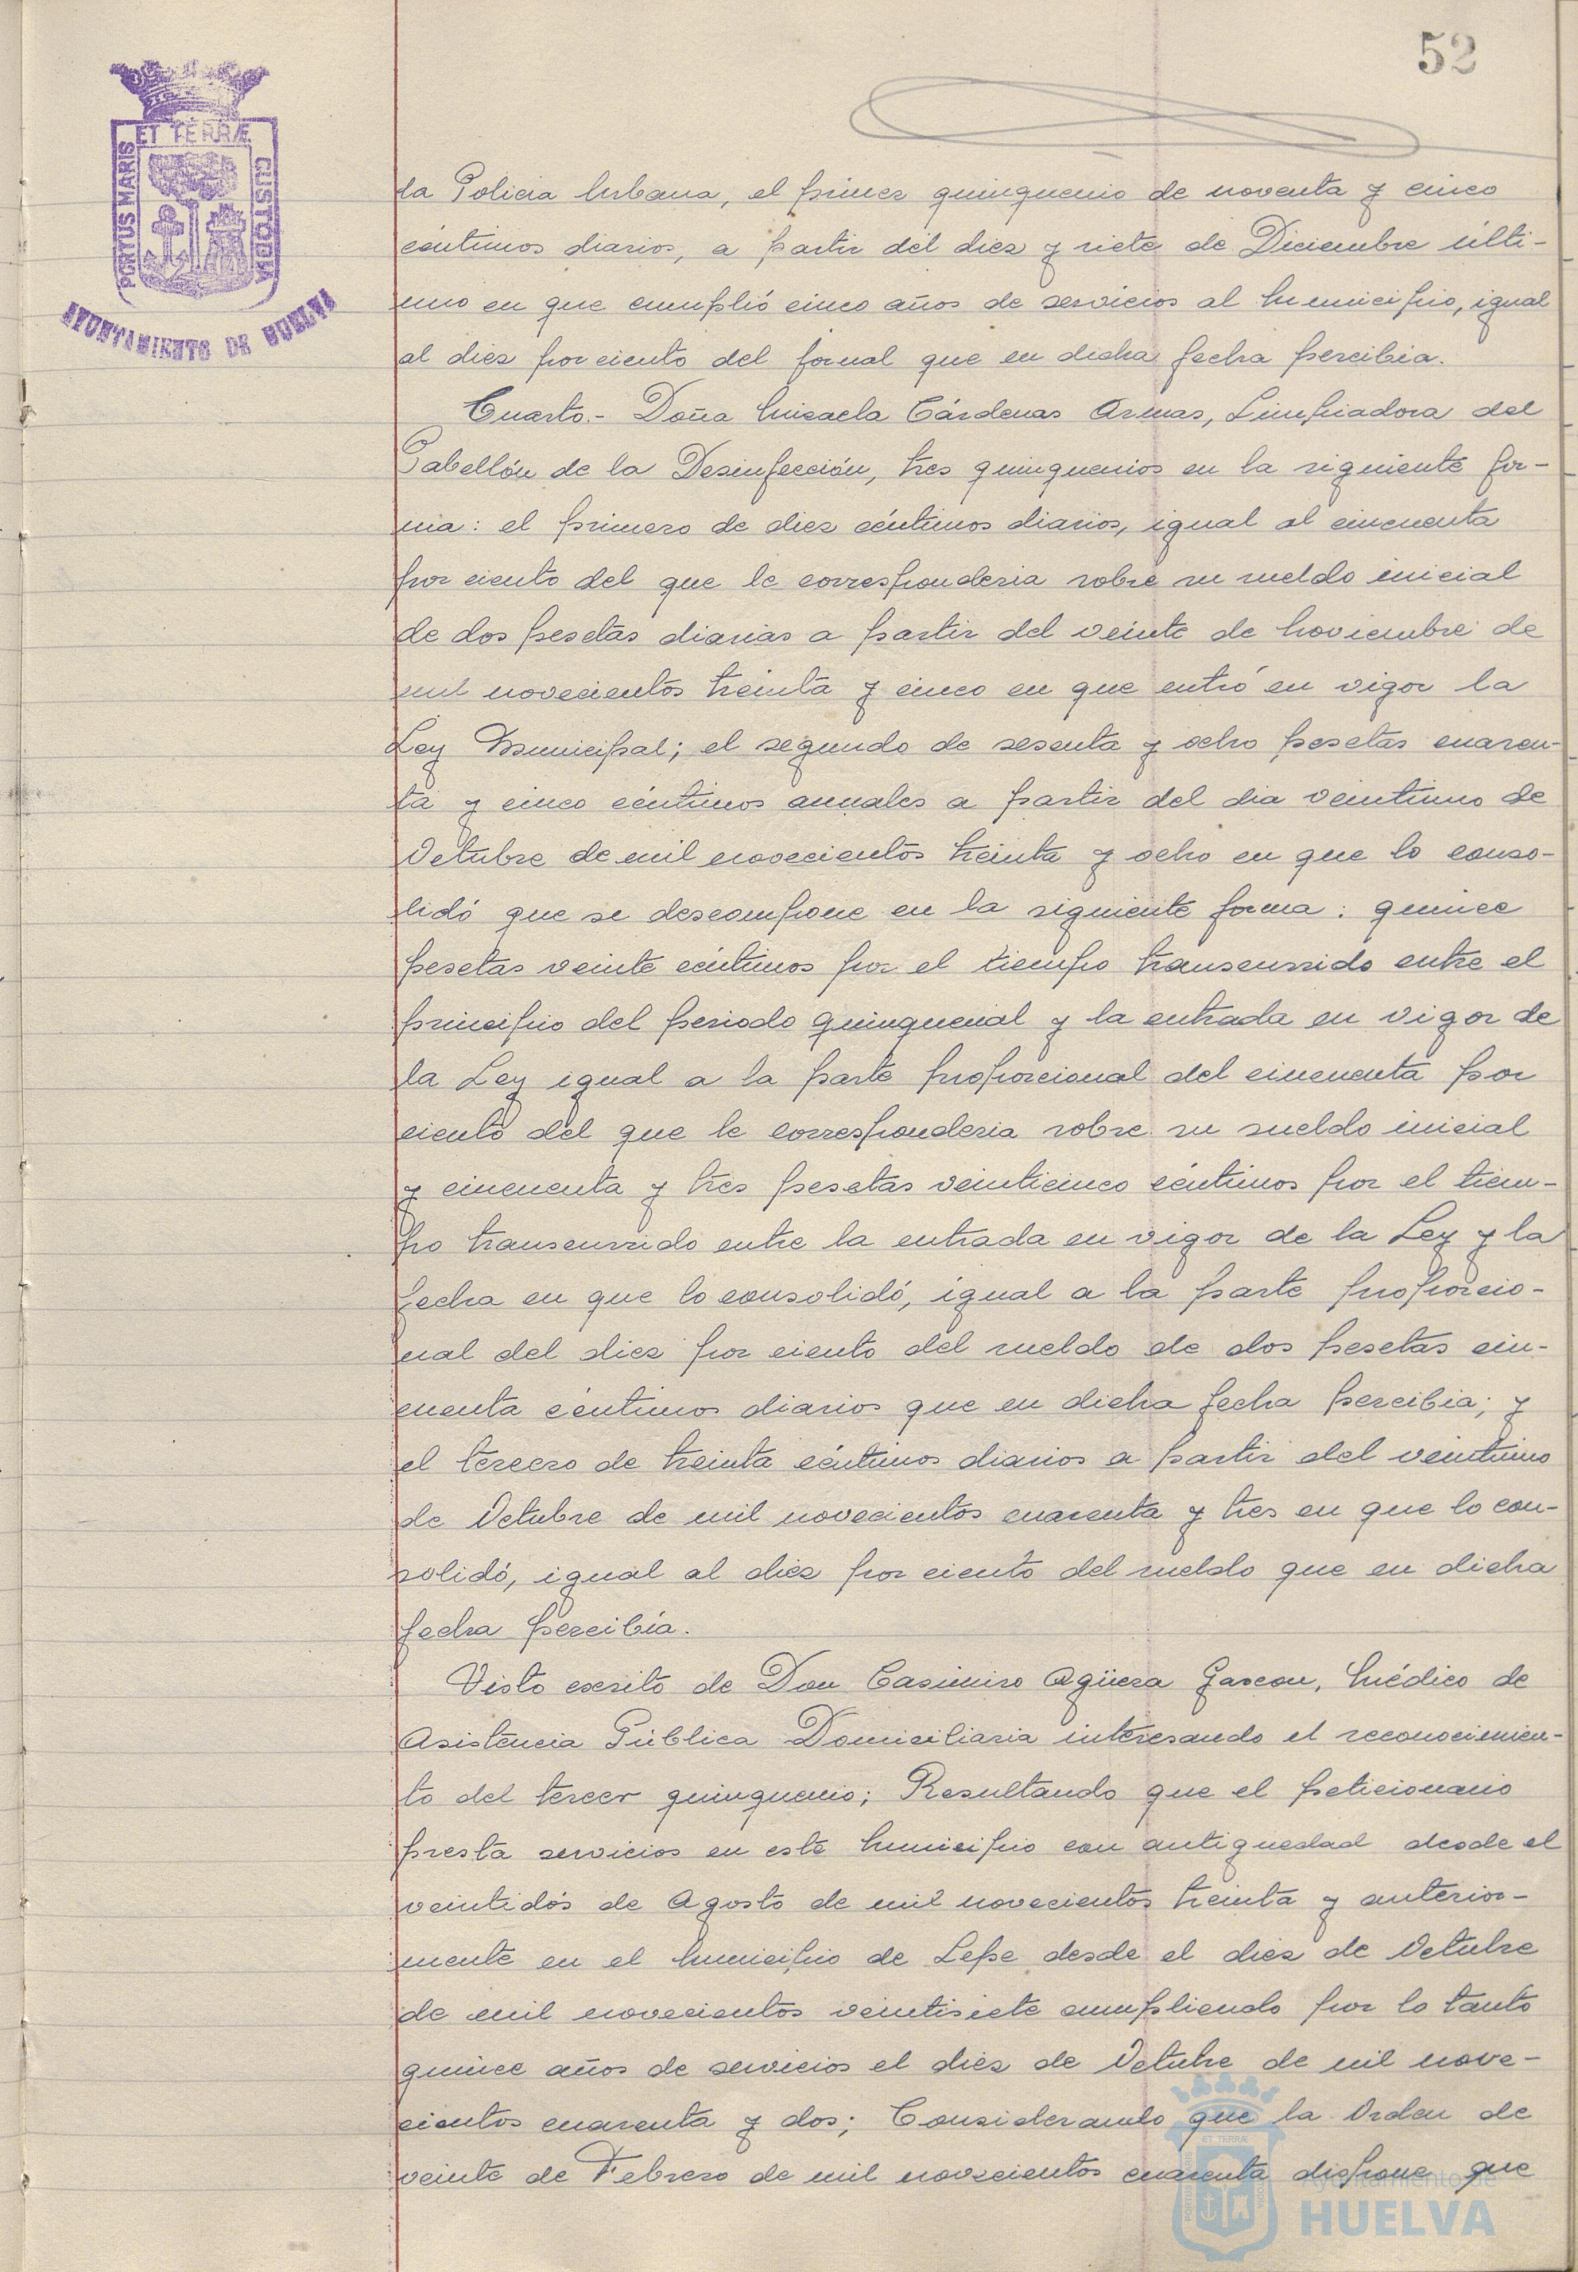 52
ET TERRÆ
PORTUS MARIS
CUSTODIA
AYUNTAMIENTO DE HUELVA
la Policia Urbana, el primer quinquenio de noventa y cinco
céntimos diarios, a partir del diez y siete de Diciembre últi-
mo en que cumplió cinco años de servicios al Municipio, igual
al diez por ciento del jornal que en dicha fecha percibia.
Cuarto.- Doña Micaela Cárdenas Armas, Limpiadora del
Pabellón de la Desinfección, tres quinquenios en la siguiente for-
ma: el primero de diez céntimos diarios, igual al cincuenta
por ciento del que le corresponderia sobre su sueldo inicial
de dos pesetas diarias a partir del veinte de Noviembre de
mil novecientos treinta y cinco en que entró en vigor la
Ley Municipal; el segundo de sesenta y ocho pesetas cuaren-
ta y cinco céntimos anuales a partir del dia veintiuno de
Octubre de mil novecientos treinta y ocho en que lo conso-
lidó que se descompone en la siguiente forma: quince
pesetas veinte céntimos por el tiempo transcurrido entre el
principio del periodo quinquenal y la entrada en vigor de
la Ley igual a la parte proporcional del cincuenta por
ciento del que le corresponderia sobre su sueldo inicial
y cincuenta y tres pesetas veinticinco céntimos por el tiem-
po transcurrido entre la entrada en vigor de la Ley y la
fecha en que lo consolidó, igual a la parte proporcio-
nal del diez por ciento del sueldo de dos pesetas cin-
cuenta céntimos diarios que en dicha fecha percibia; y
el tercero de treinta céntimos diarios a partir del veintiuno
de Octubre de mil novecientos cuarenta y tres en que lo con-
solidó, igual al diez por ciento del sueldo que en dicha
fecha percibía.
Visto escrito de Don Casimiro Agüera Gascon, Médico de
Asistencia Pública Domiciliaria interesando el reconocimien-
to del tercer quinquenio; Resultando que el peticionario
presta servicios en este Municipio con antiguedad desde el
veintidós de Agosto de mil novecientos treinta y anterior-
mente en el Municipio de Lepe desde el diez de Octubre
de mil novecientos veintisiete cumpliendo por lo tanto
quince años de servicios el diez de Octubre de mil nove-
cientos cuarenta y dos; Considerando que la Orden de
veinte de Febrero de mil novecientos cuarenta dispone que
Ayuntamiento de
HUELVA